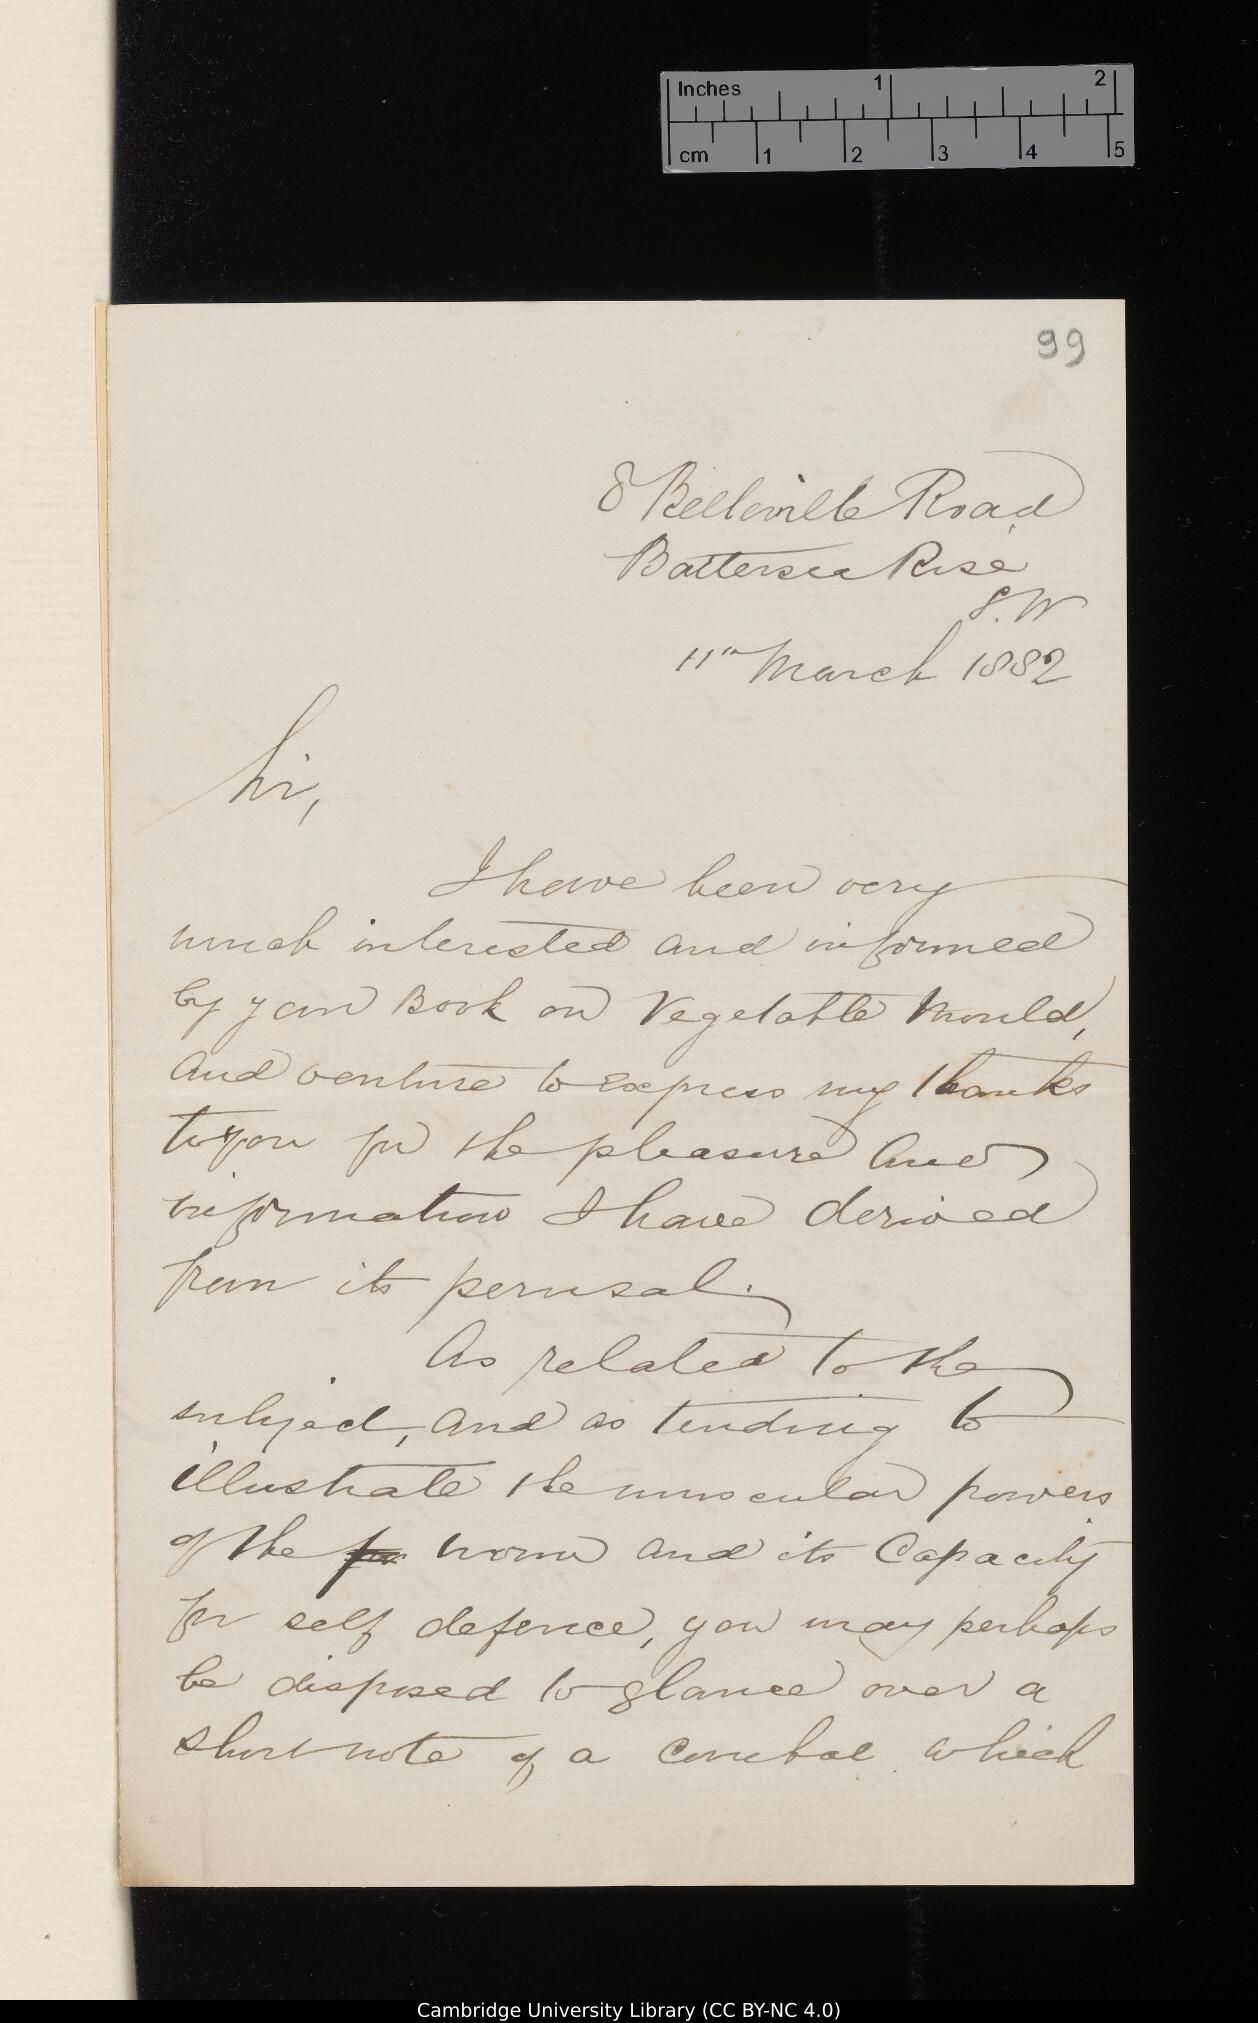 Inches 1 2
cm 1 2 3 4 5
99
8 Belleville Road
Battersea Rise
S.W
11th March 1882
Sir,
I have been very
much interested and informed
by your Book on Vegetable Mould,
and venture to express my thanks
to you for the pleasure and
information I have derived
from its perusal.
As related to the
subject, and as tending to
illustrate the muscular powers
of the worm and its Capacity
for self defence, you may perhaps
be disposed to glance over a
short note of a combat which
Cambridge University Library (CC BY-NC 4.0)